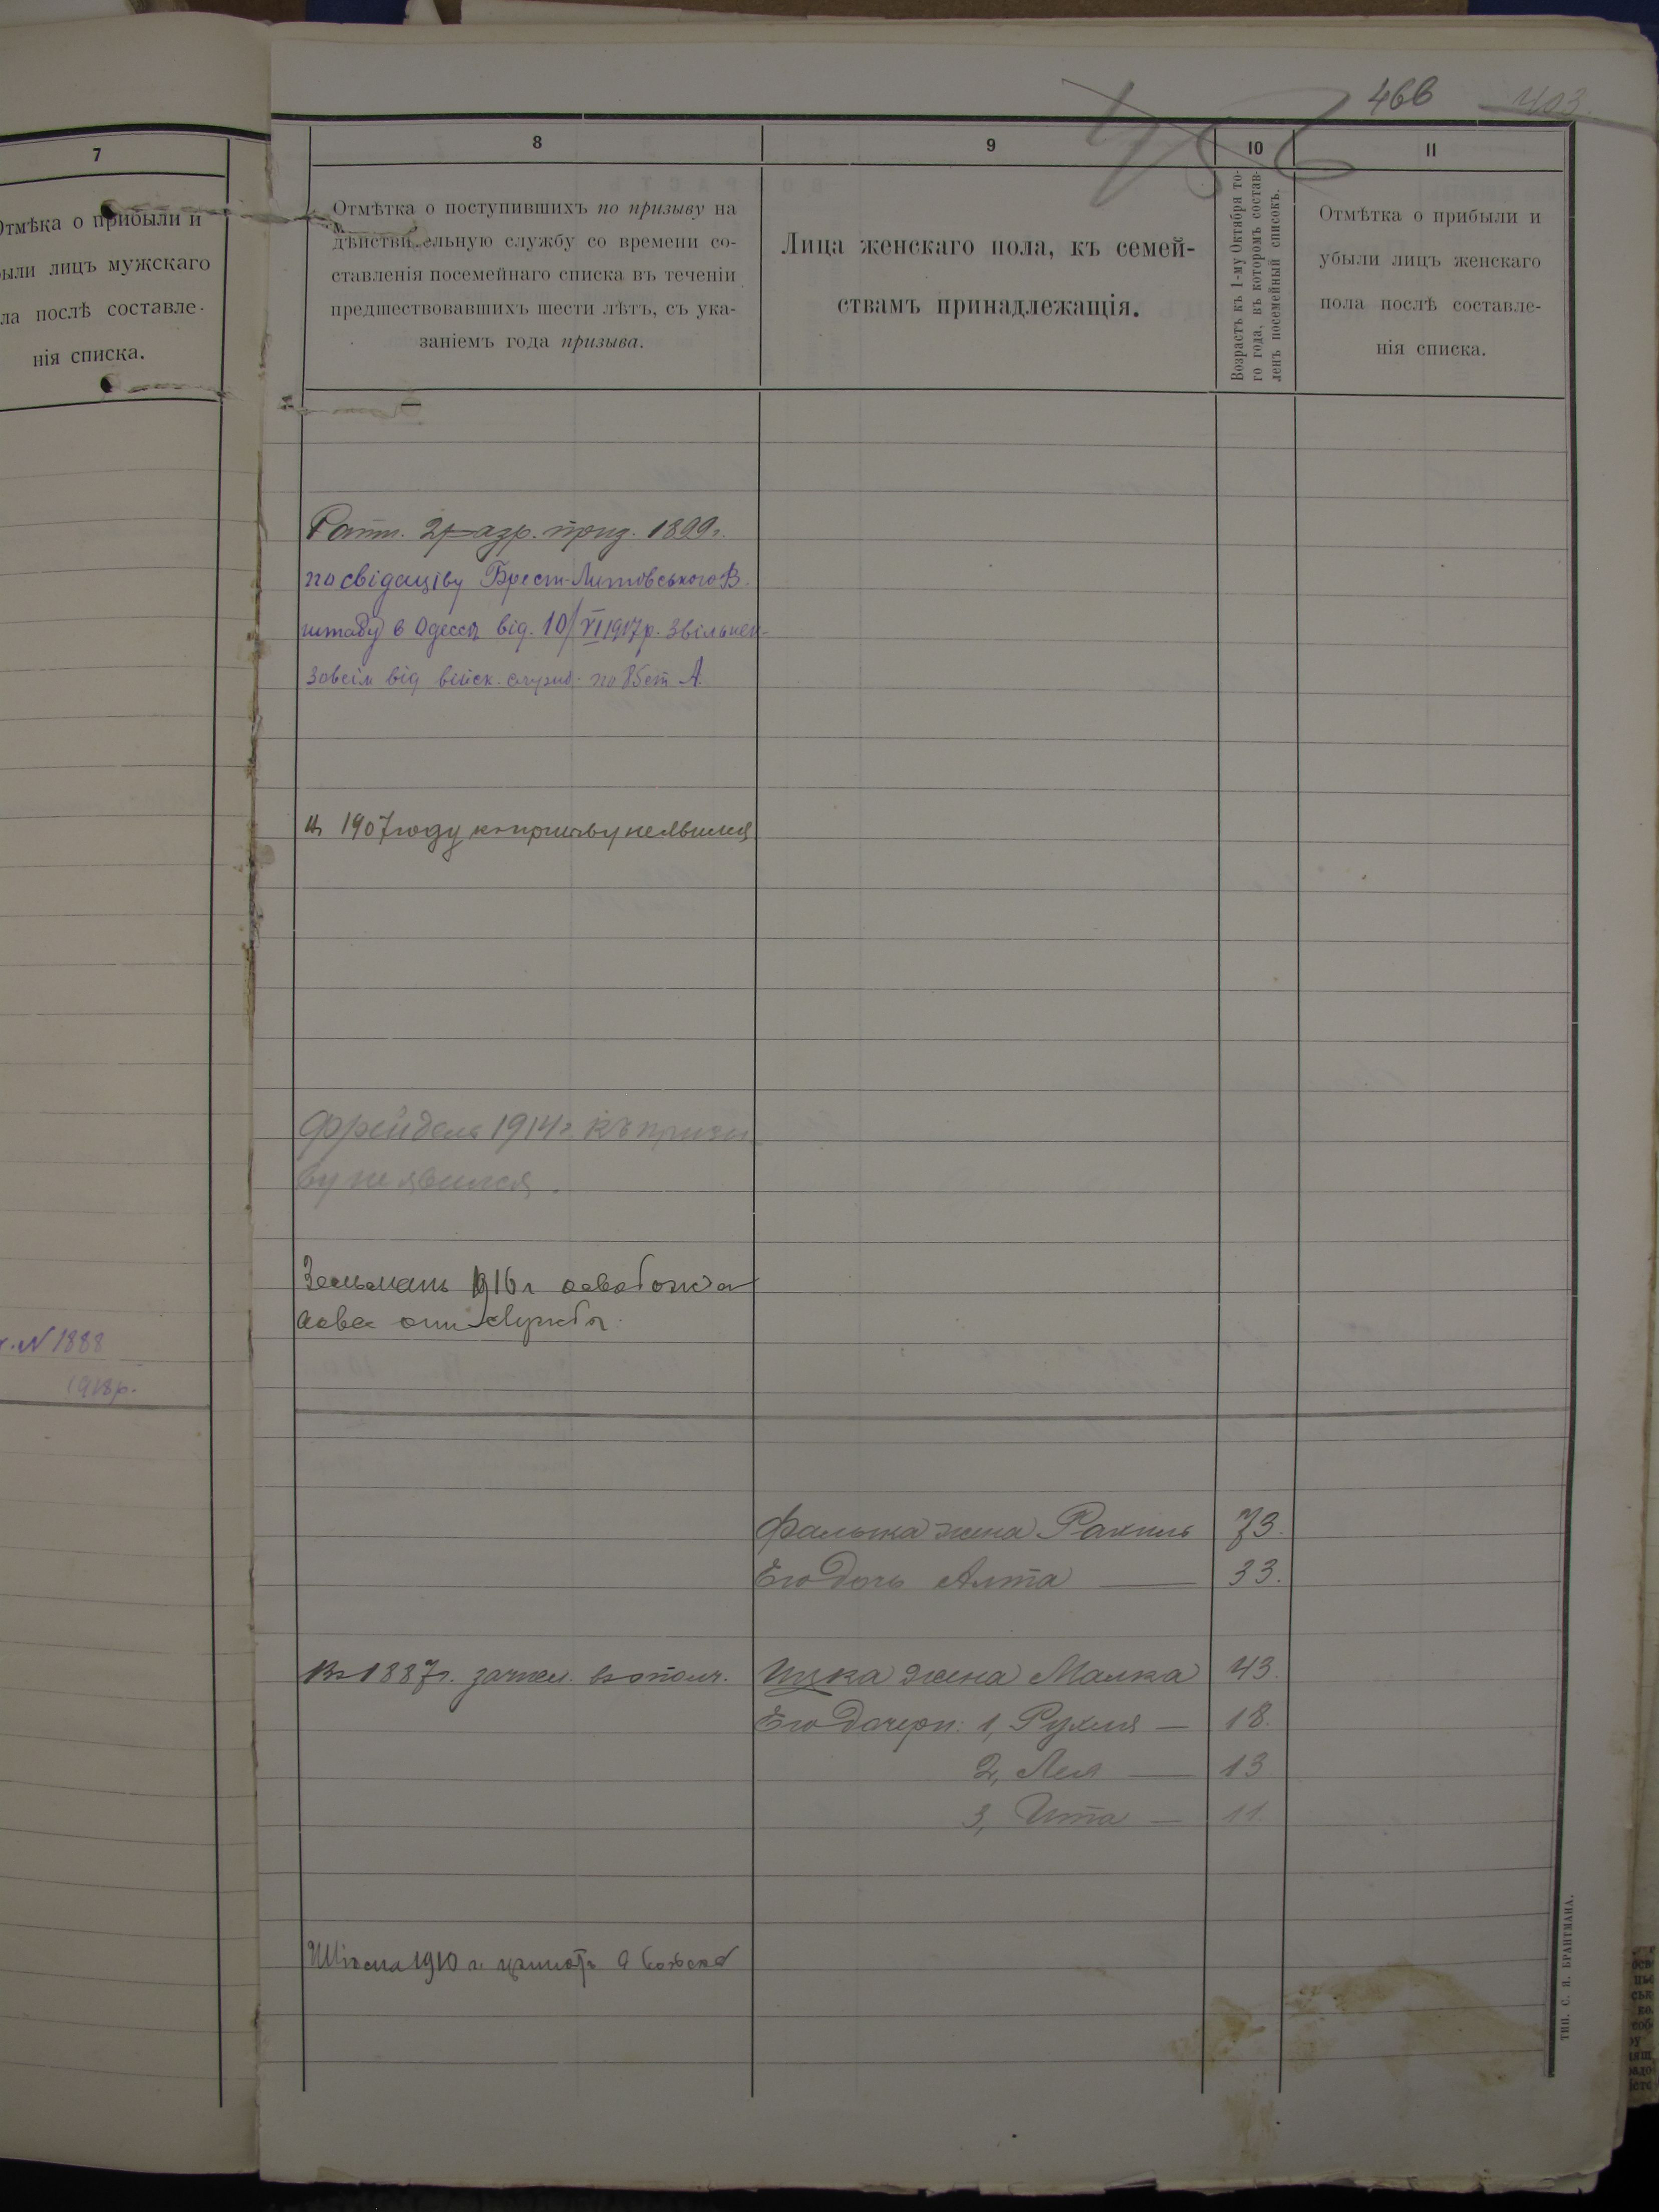 466 403
7
Отмѣка о прибыли и
были лицъ мужскаго
ла послѣ составле-
нія списка.
N 1888
1918р.
8
Отмѣтка о поступившихъ по призыву на
дѣйствительную службу со времени со-
ставленія посемейнаго списка въ теченіи
предшествовавшихъ шести лѣтъ, съ ука-
заніемъ года призыва.
9
Лица женскаго пола, къ семей-
ствамъ принадлежащія.
10
Возрастъ къ 1-му Октября то-
го года, въ которомъ состав-
ленъ посемейный списокъ.
11
Отмѣтка о прибыли и
убыли лицъ женскаго
пола послѣ составле-
нія списка.
Ратн. 2 разр. приз. 1899г.
по свідоціву Брест-Литовського В.
штабу в Одессі від. 10/XI 1917р. Звільнен
зовсім від війск. служб. по ст А.
1907 году къ призыву не явился
Фрейдель 1914г. къ призы
ву не явился.
Зельманъ 1916г освобожден
совсе отъ службы.
Фалька жена Рахиль 73.
Его дочь Алта — 33.
Въ 1887г. зачисл. въ ополч. Ицка жена Малка 43.
Его дочери: 1, Рухля — 18.
2, Лея — 13
3, Ита — 11.
1910 г.
ТИП. С. Я. БРАНТМАНА.